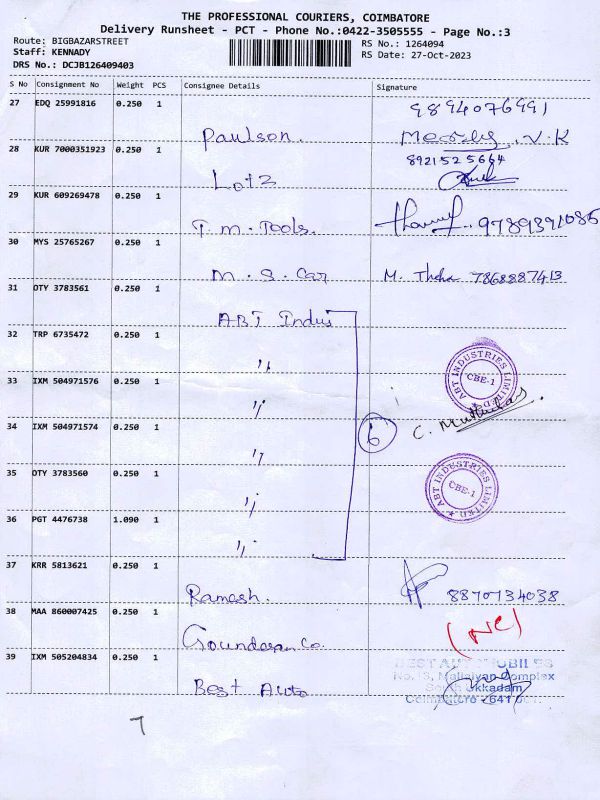 THE PROFESSIONAL COURIERS, COIMBATORE
Delivery Runsheet - PCT - Phone No.:0422-3505555 - Page No.:3
Route: BIGBAZARSTREET
Staff: KENNADY
DRS No.: DCJB126409403
RS No.: 1264094
RS Date: 27-Oct-2023
S No Consignment No Weight PCS Consignee Details Signature
27 EDQ 25991816 0.250 1 Paulson. 9894076991
28 KUR 7000351923 0.250 1 Lotz V.K
8921525664
29 KUR 609269478 0.250 1 T.M. Tools. 9789391085
30 MYS 25765267 0.250 1 M.S. Car M. Thaha 7868887413
31 OTY 3783561 0.250 1 ABT Indus
32 TRP 6735472 0.250 1 〃
ABT INDUSTRIES LIMITED
CBE-1
33 IXM 504971576 0.250 1 〃
34 IXM 504971574 0.250 1 〃 6 C.
35 OTY 3783560 0.250 1 〃
ABT INDUSTRIES LIMITED
CBE-1
36 PGT 4476738 1.090 1 〃
37 KRR 5813621 0.250 1 Ramesh. 8870734038
38 MAA 860007425 0.250 1 Co. (NC)
39 IXM 505204834 0.250 1 Best Auto
BEST AUTOMOBILES
Complex
South Ukkadam
Coimbatore - 641
7